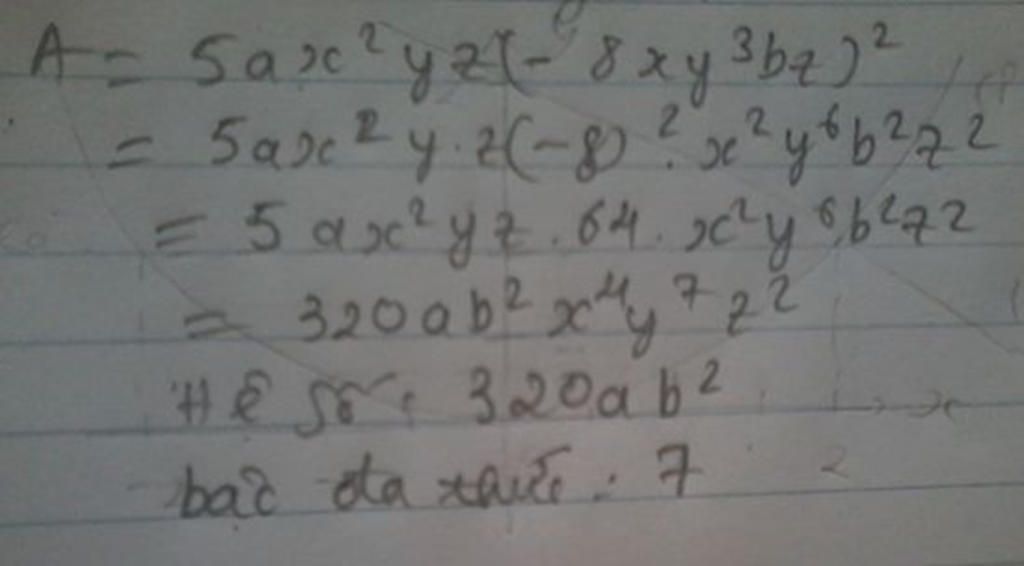 A = 5ax²yz(-8xy³bz)²
= 5ax²y.z(-8)².x²y⁶b²z²
= 5ax²yz.64.x²y⁶b²z²
= 320ab²x⁴y⁷z²
Hệ số: 320ab²
bậc đa thức: 7